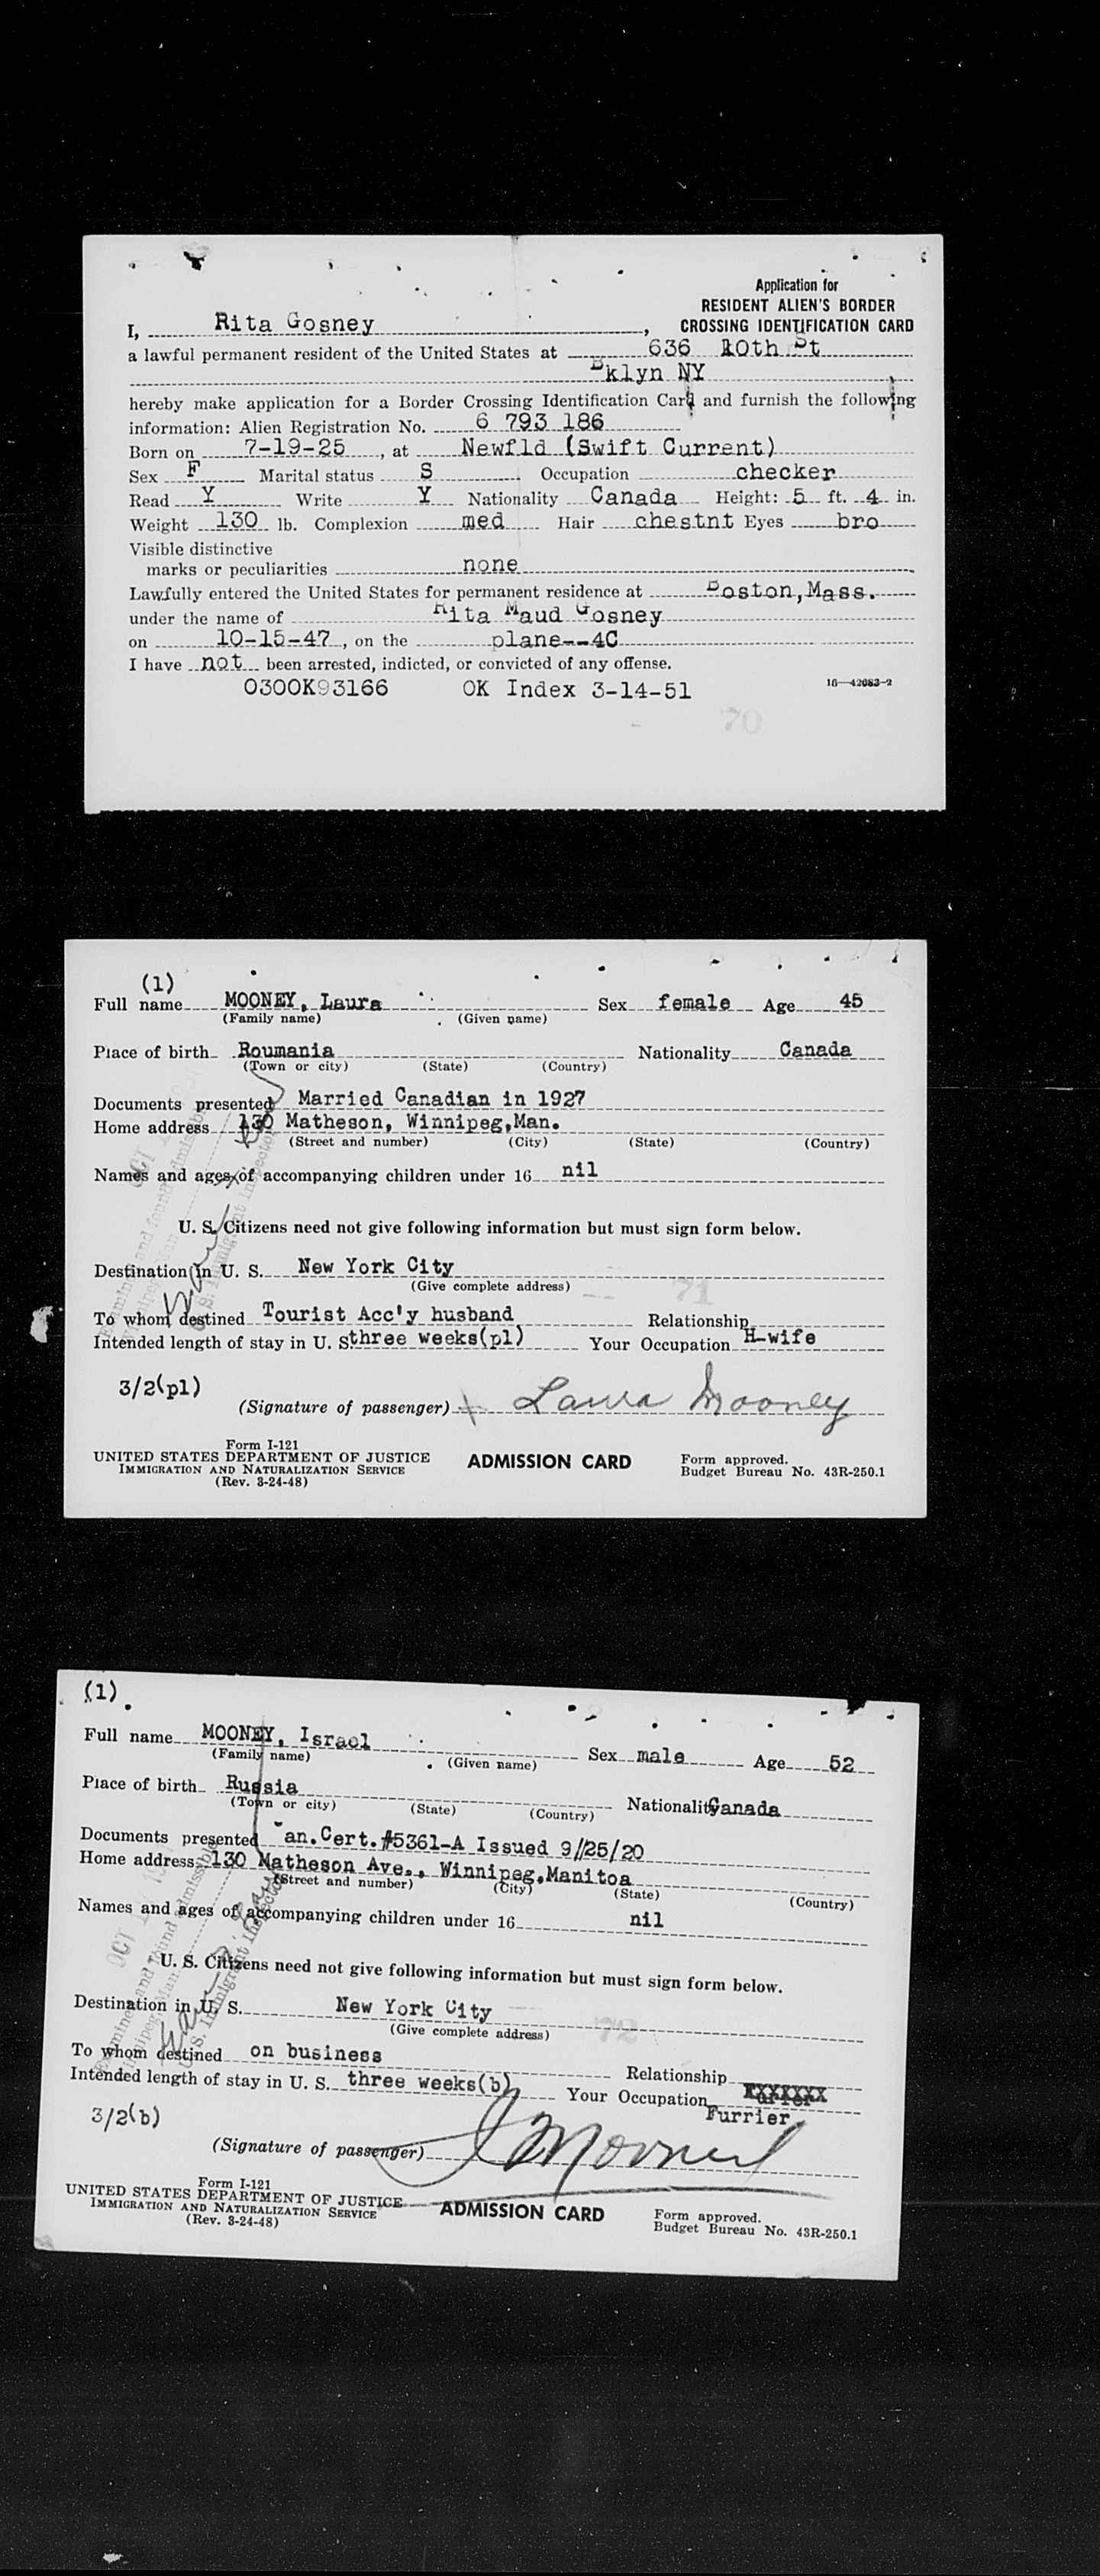 Application for
RESIDENT ALIEN'S BORDER
I, Rita Gosney, CROSSING IDENTIFICATION CARD
a lawful permanent resident of the United States at 636 10th St
Bklyn NY
hereby make application for a Border Crossing Identification Card and furnish the following
information: Alien Registration No. 6 793 186
Born on 7-19-25, at Newfld (Swift Current)
Sex F Marital status S Occupation checker
Read Y Write Y Nationality Canada Height: 5 ft. 4 in.
Weight 130 lb. Complexion med Hair chestnt Eyes bro
Visible distinctive
marks or peculiarities none
Lawfully entered the United States for permanent residence at Boston, Mass.
under the name of Rita Maud Gosney
on 10-15-47, on the plane--4C
I have not been arrested, indicted, or convicted of any offense.
0300K93166 OK Index 3-14-51 16—42683-2
70
(1)
Full name MOONEY, Laura Sex female Age 45
(Family name) (Given name)
Place of birth Roumania Nationality Canada
(Town or city) (State) (Country)
Documents presented Married Canadian in 1927
Home address 130 Matheson, Winnipeg, Man.
(Street and number) (City) (State) (Country)
Names and ages of accompanying children under 16 nil
U. S. Citizens need not give following information but must sign form below.
Destination in U. S. New York City
(Give complete address) 71
To whom destined Tourist Acc'y husband Relationship
Intended length of stay in U. S. three weeks(pl) Your Occupation H-wife
3/2(pl)
(Signature of passenger) Laura Mooney
Form I-121
UNITED STATES DEPARTMENT OF JUSTICE ADMISSION CARD Form approved.
IMMIGRATION AND NATURALIZATION SERVICE Budget Bureau No. 43R-250.1
(Rev. 3-24-48)
(1)
Full name MOONEY, Israel Sex male Age 52
(Family name) (Given name)
Place of birth Russia Nationality Canada
(Town or city) (State) (Country)
Documents presented Can.Cert.#5361-A Issued 9/25/20
Home address 130 Matheson Ave., Winnipeg, Manitoa
(Street and number) (City) (State) (Country)
Names and ages of accompanying children under 16 nil
U. S. Citizens need not give following information but must sign form below.
Destination in U. S. New York City
(Give complete address) 72
To whom destined on business Relationship
Intended length of stay in U. S. three weeks(b) Your Occupation
Furrier
3/2(b)
(Signature of passenger) I Mooney
Form I-121
UNITED STATES DEPARTMENT OF JUSTICE ADMISSION CARD Form approved.
IMMIGRATION AND NATURALIZATION SERVICE Budget Bureau No. 43R-250.1
(Rev. 3-24-48)